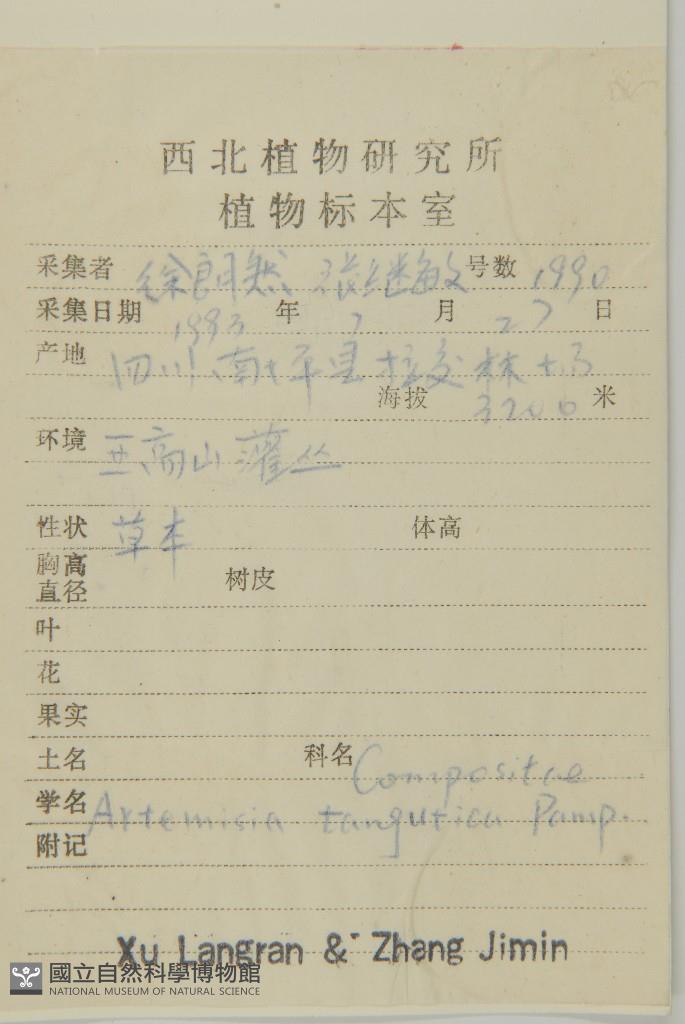 西北植物研究所
植物标本室
采集者 徐朗然 张继敏 号数 1990
采集日期 1993 年 7 月 27 日
产地 四川、南坪县 林场
海拔 3200 米
环境 亚高山灌丛
性状 草本 体高
胸高直径 树皮
叶
花
果实
土名 科名 Compositae
学名 Artemisia tangutica Pamp.
附记
Xu Langran & Zhang Jimin
國立自然科學博物館
NATIONAL MUSEUM OF NATURAL SCIENCE